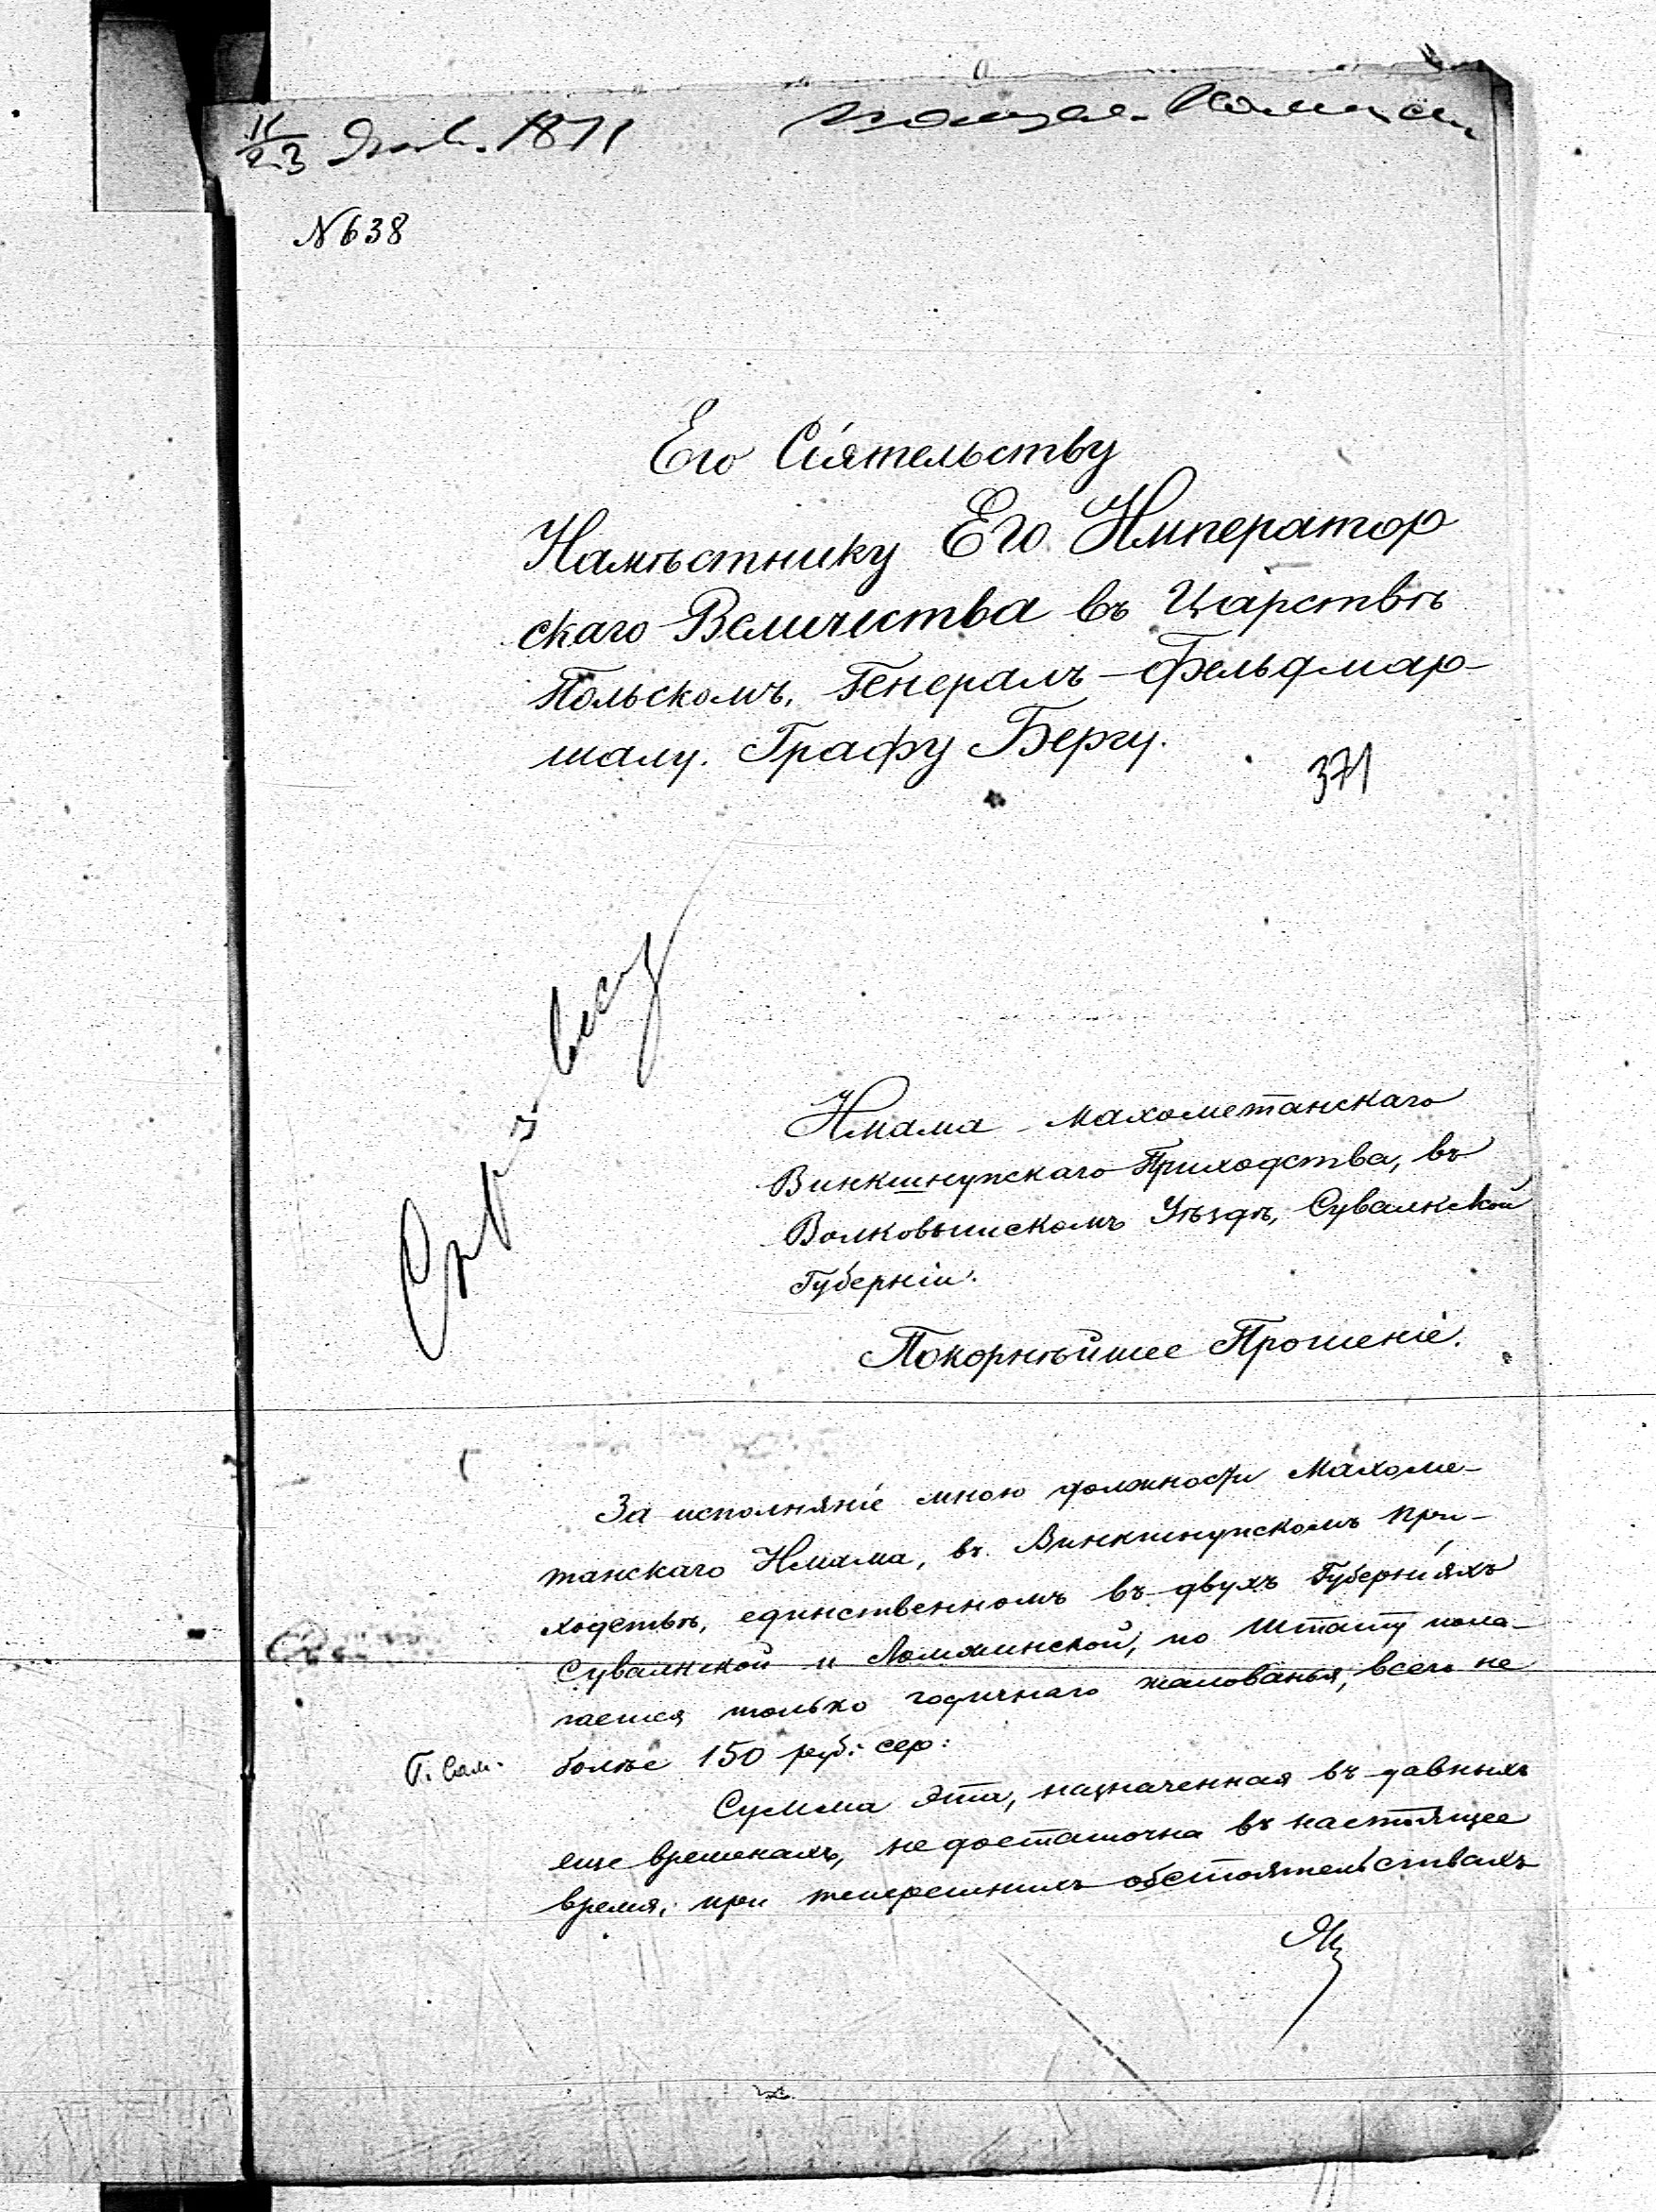 11/23 Янв. 1871
№ 638
Его Сіятельству
Намѣстнику Его Император
скаго Величества въ Царствѣ
Польскомъ, Генералъ-Фельдмар-
шалу. Графу Бергу.
371
Имама Махометанскаго
Винкшнупскаго Приходства, въ
Волковышскомъ Уѣздѣ, Сувалкской
Губерніи.
Покорнѣйшее Прошеніе.
За исполняніе мною должности Махоме-
танскаго Имама, въ Винкшнупскомъ при-
ходствѣ, единственномъ въ двухъ Губерніяхъ
Сувалкской и Ломжинской, по штату пола-
гается только годичнаго жалованья, всего не
болѣе 150 руб: сер:
Сумма эта, назначенная въ давныхъ
еще временахъ, недостаточна въ настоящее
время, при теперешнихъ обстоятельствахъ